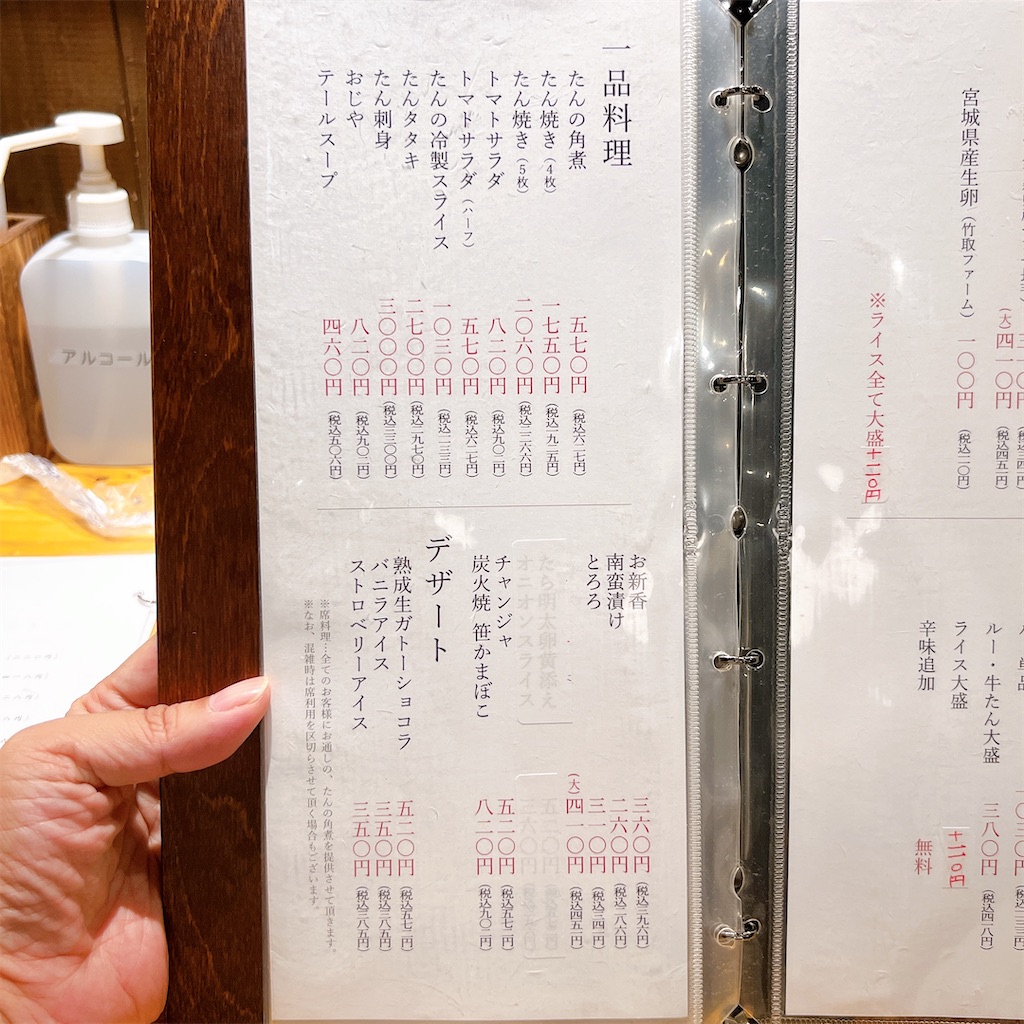 宮城県産生卵（竹取ファーム） 一〇〇円（税込一一〇円）
(大) 四一〇円（税込四五一円）
※ライス全て大盛＋一一〇円
ルー・牛たん大盛 三八〇円（税込四一八円）
ライス大盛 ＋一一〇円
辛味追加 無料
一品料理
たんの角煮 五七〇円（税込六二七円）
たん焼き（4枚） 一七五〇円（税込一九二五円）
たん焼き（5枚） 二〇六〇円（税込二二六六円）
トマトサラダ 八二〇円（税込九〇二円）
トマトサラダ（ハーフ） 五七〇円（税込六二七円）
たんの冷製スライス 一〇三〇円（税込一一三三円）
たんタタキ 二七〇〇円（税込二九七〇円）
たん刺身 三〇〇〇円（税込三三〇〇円）
おじや 八二〇円（税込九〇二円）
テールスープ 四六〇円（税込五〇六円）
お新香 三六〇円（税込三九六円）
南蛮漬け 二六〇円（税込二八六円）
とろろ 三一〇円（税込三四一円）
(大) 四一〇円（税込四五一円）
たら明太卵黄添え
オニオンスライス
チャンジャ 五二〇円（税込五七二円）
炭火焼 笹かまぼこ 八二〇円（税込九〇二円）
デザート
熟成生ガトーショコラ 五二〇円（税込五七二円）
バニラアイス 三五〇円（税込三八五円）
ストロベリーアイス 三五〇円（税込三八五円）
※席料理…全てのお客様にお通しの、たんの角煮を提供させて頂きます。
※なお、混雑時は席利用を区切らさせて頂く場合もございます。
アルコール